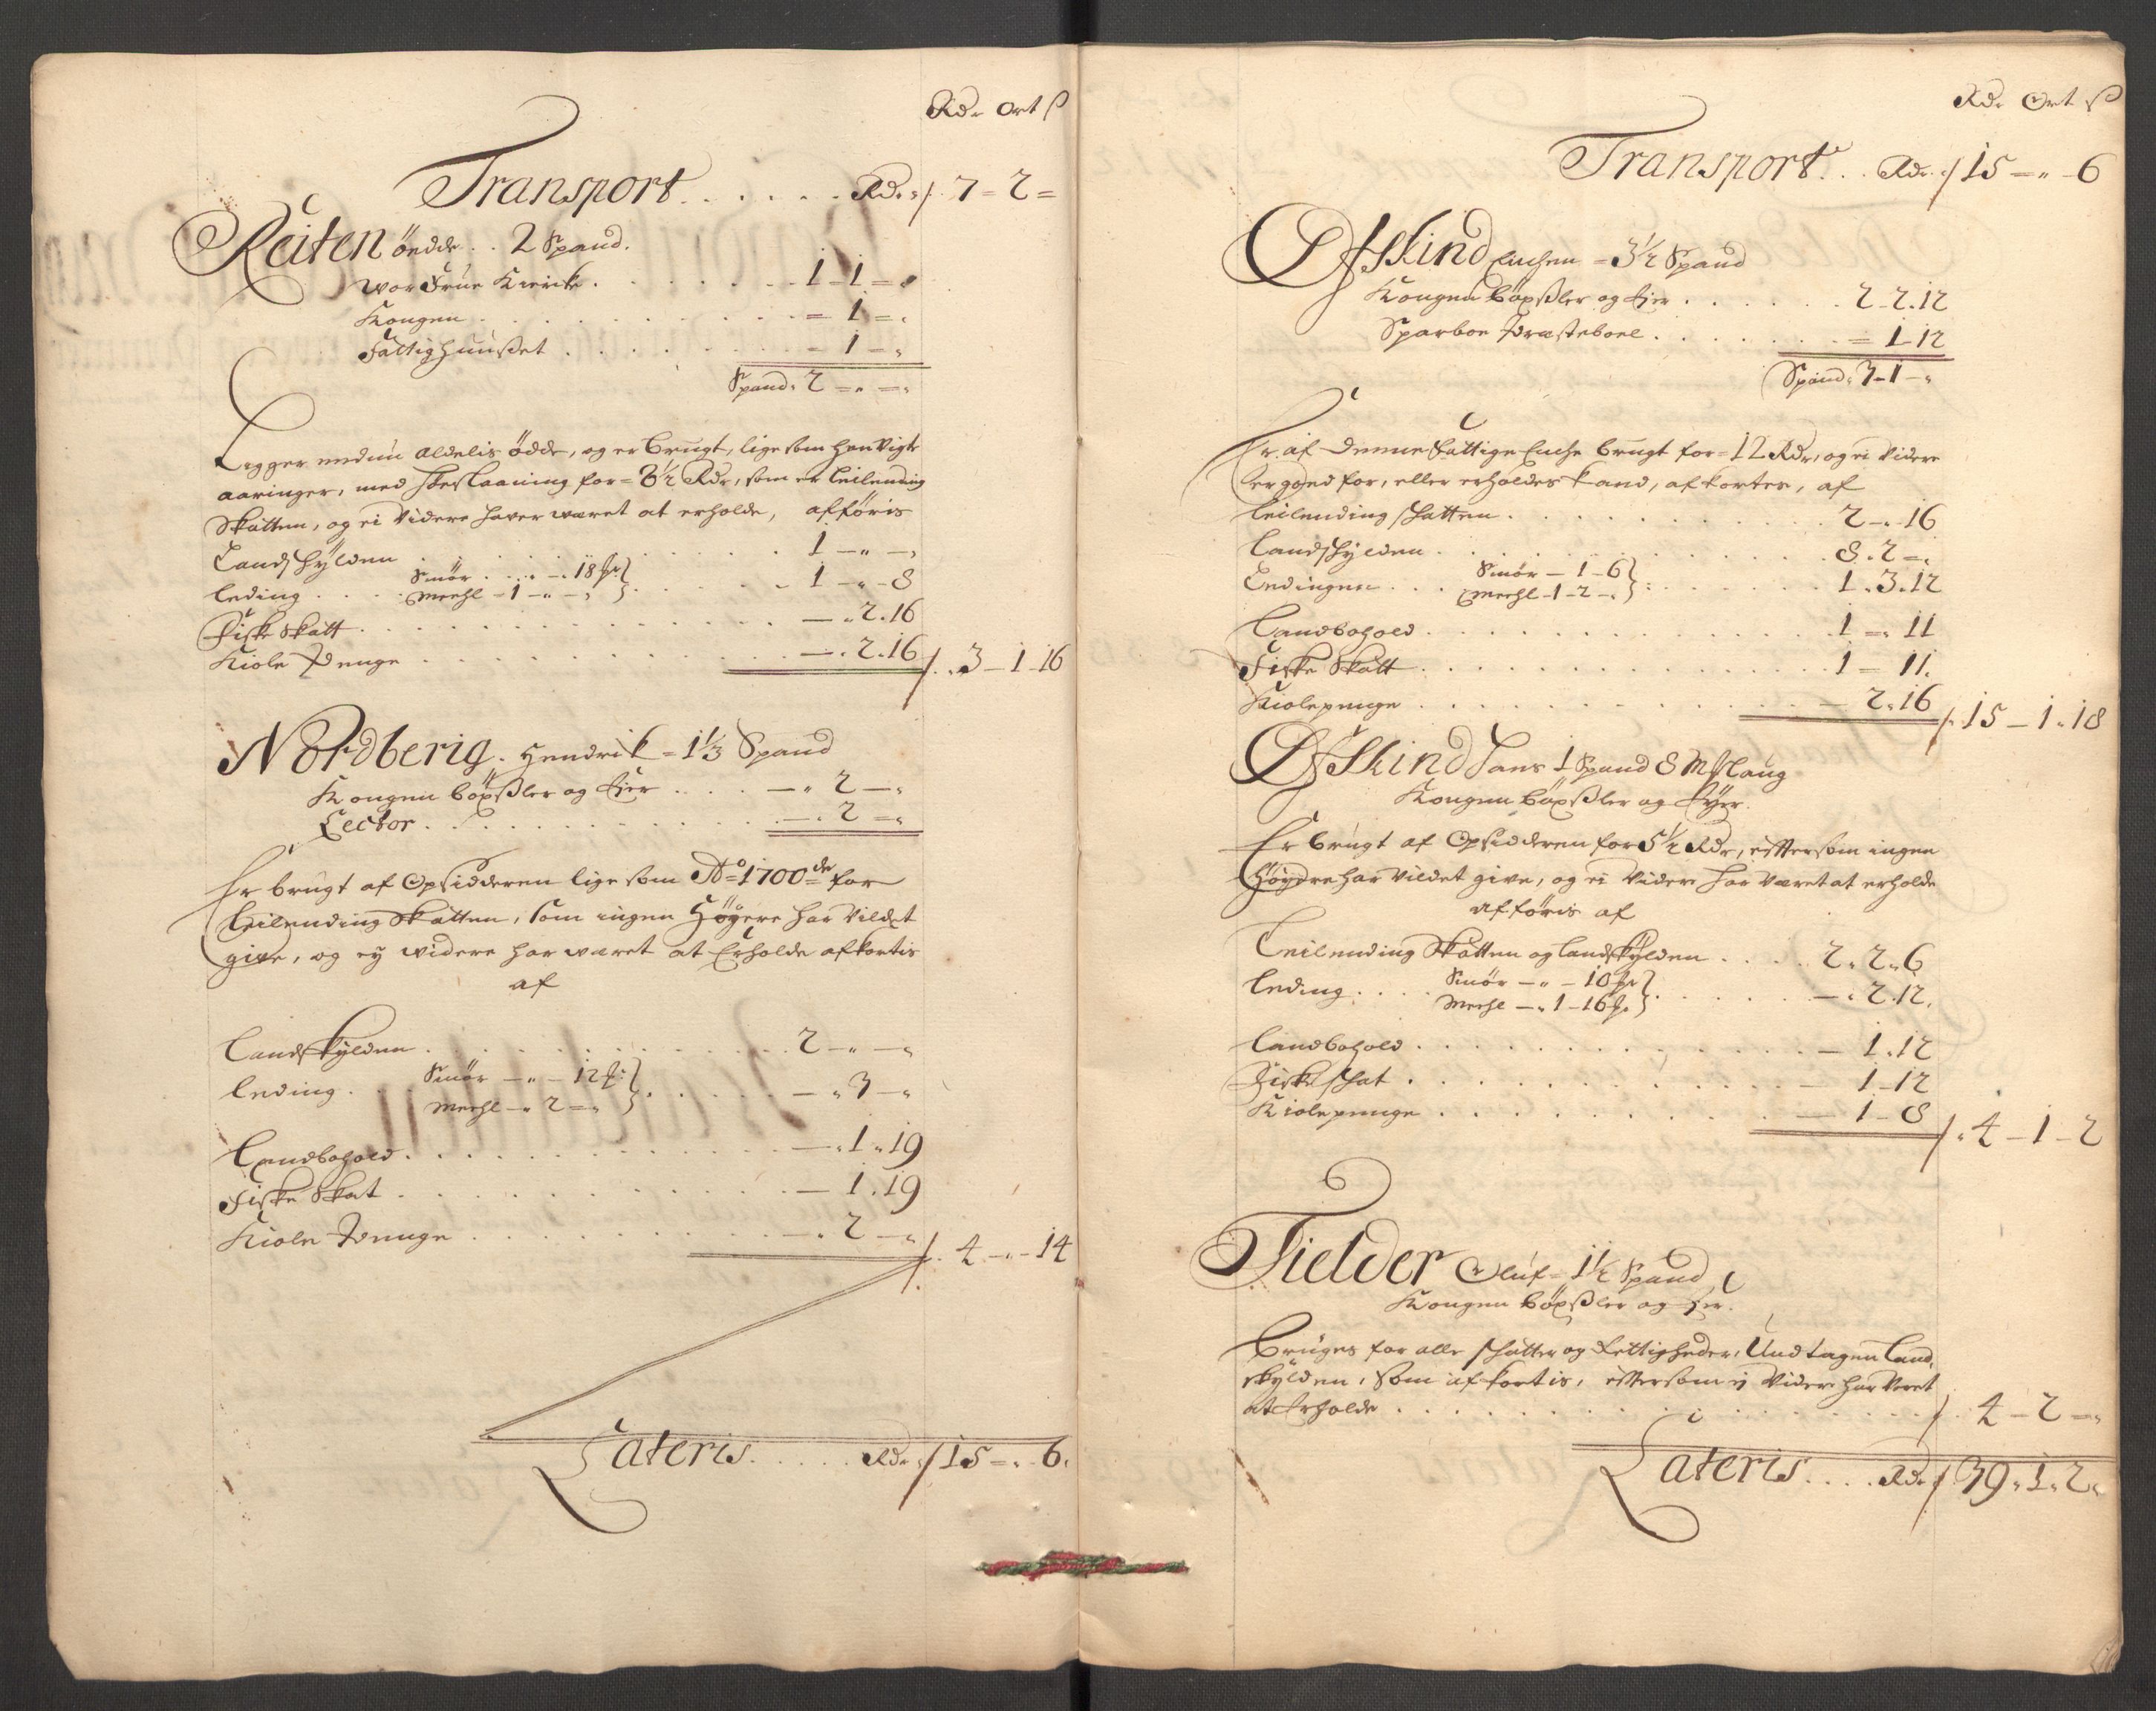 Rdr Ort ß
Transport . . . . . . Rdr: 7 - 2 =
Reiten ödde . . 2 Spand.
Wor Frue Kiercke . . . . . . . 1 - 1 = „
Kongen . . . . . . . . . . = 1 = „
Fattighuußet . . . . . . . . - 1 - „
Spand: 2 = „ = „
Ligger endnu aldelis ödde, og er brugt, lige som
aaringer, med Höeslaaning for = 3½ Rdr, som er Leilending
Skatten, og ei Videre haver wæret at erholde, afföris
Landschÿlden . . . . . . . . 1 - „ - „
Leding . . . . Smör . . „ - . 18 . . . . . 1 - „ - 8
Meehl - 1 - „ - „
Fiske Skatt . . . . . . . . . . . . - „ 2 . 16
Kiole Penge . . . . . . . . . . - „ 2 . 16 3 - 1 - 16
Nordberig. Hendrik = 1⅓ Spand
Kongen böxßler og Eier . . . . - „ 2 - „
Lector . . . . . . . . . . . . - . 2 = „
Er brugt af Opsidderen lige som Ao 1700de for
Leilending Skatten, som ingen Högere har Vildet
give, og eÿ widere har wæret at Erholde afkortis
af
Landskÿlden . . . . . . . . . . 2 - „ - „
Leding . . Smör - „ - 12 . . . . . - „ 3 - „
Meehl - „ 2 = „
Landbohold . . . . . . . . . . . - „ 1 „ 19
Fiske Skat . . . . . . . . . . . - 1 . 19
Kiole Penge . . . . . . . . . . - „ 2 - „ 4 - „ - 14
Lateris . . . . . Rdr: 15 = „ . 6.
Rdr Ort ß
Transport . . . Rdr. 15 - „ - 6
Ofskind Enchen = 3½ Spand
Kongen böxßler og Eier . . . . . . 2 - 2 . 12
Sparboe Præsteboel . . . . . . . = 1 - 12
Spand: 3 - 1 - „
Er af denne Fattige Enche brugt for = 12 Rdr, og ei Videre
er goed for, eller erholdes kand, afkortes, af
Leilending Schatten . . . . . . . . . . 2 - „ - 16
Landschÿlden . . . . . . . . . . . . . 8 . 2 = „
Ledingen . . . Smör - 1 - 6 . . . . . . . 1 . 3 . 12
Meehl - 1 - 2 - „
Landbohold . . . . . . . . . . . . . . 1 = „ 11
Fiske Skatt . . . . . . . . . . . . . . 1 - 11.
Kiolepenge . . . . . . . . . . . . - 2 „ 16 15 - 1 „ 18
Ofskind Hans 1 Spand 8 Mk laug
Kongen böxßler og Eÿer.
Er brugt af Opsidderen for 5½ Rdr, efftersom ingen
Höydre har Vildet give, og ei Videre har Været at erholde
afföris af
Leilending Skatten og Landskÿlden . . . . 2 „ 2 „ 6
Leding . . . Smör - „ - 10 . . . . . . - „ 2 . 12.
Meehl - „ 1 - 16
Landbohold . . . . . . . . . . . . . - 1 . 12
Fiske Schat . . . . . . . . . . . . . - 1 - 12
Kiolepenge . . . . . . . . . . . . - 1 - 8 4 - 1 - 2
Fielder Oluf = 1½ Spand
Kongen böxßler og Eier.
Bruges for alle Schatter og Rettigheder, Undtagen Land,
skÿlden, som afkortis, efftersom ei Videre har Veret
at Erholde . . . . . . . . . . . . . . 4 - 2 = „
Lateris . . . . Rdr 39 „ 1 „ 2 „